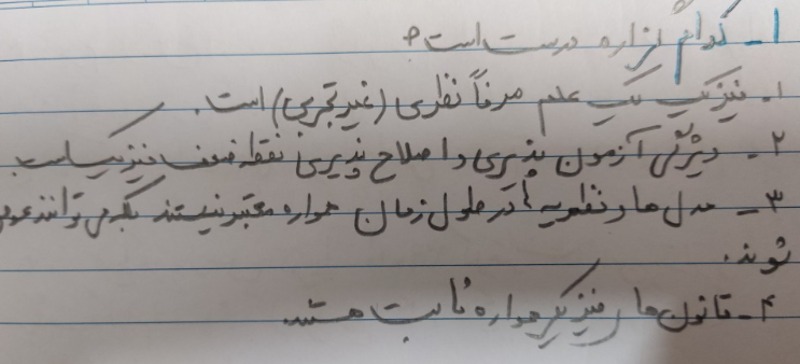 ۱- کدام گزاره درست است؟
۱. فیزیک یک علم صرفاً نظری (غیرتجربی) است.
۲- ویژگی آزمون پذیری و اصلاح پذیری نقطه ضعف فیزیک است.
۳- مدل ها و نظریه ها در طول زمان همواره معتبر نیستند بلکه می توانند عوض
شوند.
۴- قانون های فیزیک همواره ثابت هستند